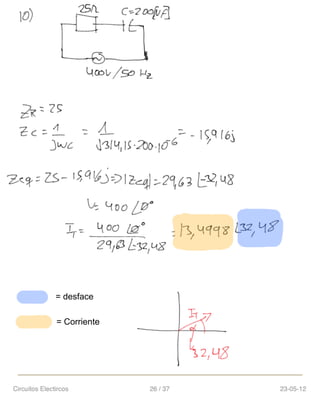 10)
25Ω C=200[µF]
400V/50 Hz
ZR = 25
Zc = 1/jwc = 1/j314,15·200·10^-6 = -15,916j
Zeq = 25 - 15,916j => |Zeq| = 29,63 ∠-32,48
V = 400 ∠0°
IT = 400 ∠0° / 29,63 ∠-32,48 = 13,4998 ∠32,48
= desface
= Corriente
IT
∠32,48
Circuitos Electircos 26 / 37 23-05-12